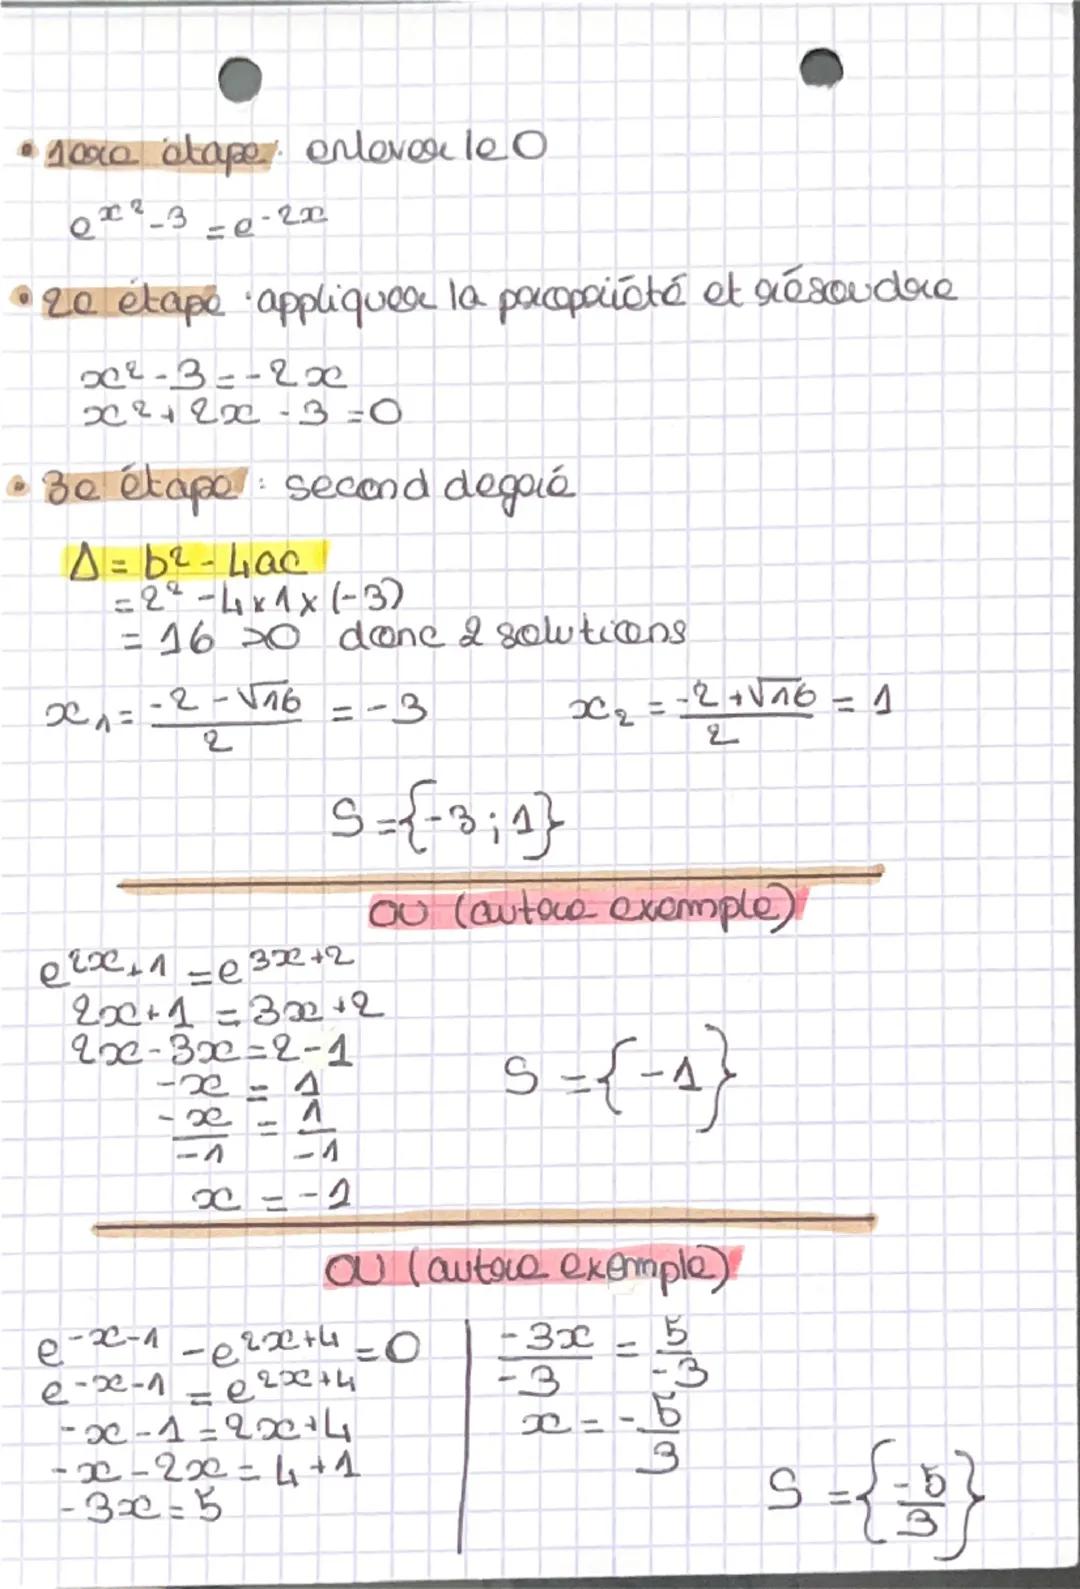 • 1ère étape : enlever le 0
e^{x²-3} = e^{-2x}
• 2e étape : appliquer la propriété et résoudre
x² - 3 = -2x
x² + 2x - 3 = 0
• 3e étape : second degré
Δ = b² - 4ac
= 2² - 4 × 1 × (-3)
= 16 > 0 donc 2 solutions
x₁ = (-2 - √16)/2 = -3    x₂ = (-2 + √16)/2 = 1
S = {-3 ; 1}
ou (autre exemple)
e^{2x+1} = e^{3x+2}
2x + 1 = 3x + 2
2x - 3x = 2 - 1
-x = 1
-x/-1 = 1/-1
x = -1
S = {-1}
ou (autre exemple)
e^{-x-1} - e^{2x+4} = 0
e^{-x-1} = e^{2x+4}
-x - 1 = 2x + 4
-x - 2x = 4 + 1
-3x = 5
-3x/-3 = 5/-3
x = -5/3
S = {-5/3}